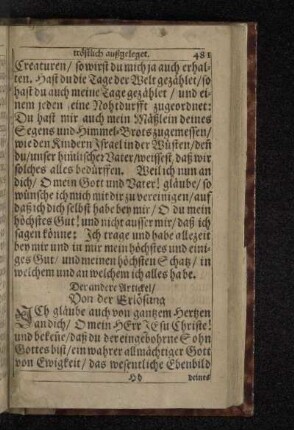 tröstlich außgeleget. 481
Creaturen / so wirst du mich ja auch erhal-
ten. Hast du die Tage der Welt gezählet / so
hast du auch meine Tage gezählet / und ei-
nem jeden seine Nohtdurfft zugeordnet:
Du hast mir auch mein Mäßlein deines
Segens und Himmel-Brots zugemessen /
wie den Kindern Israel in der Wüsten / deñ
du / unser him̃lischer Vater / weissest, daß wir
solches alles bedürffen. Weil ich nun an
dich / O mein Gott und Vater! gläube / so
wünsche ich mich mit dir zu vereinigen / auf
daß ich dich selbst habe bey mir / O du mein
höchstes Gut! und nicht ausser mir / daß ich
sagen könne: Ich trage und habe allezeit
bey mir und in mir mein höchstes und eini-
ges Gut / und meinen höchsten Schatz / in
welchem und an welchem ich alles habe.
Der andere Artikel /
Von der Erlösung
ICh gläube auch von gantzem Hertzen
an dich / O mein HErr JEsu Christe!
und bekeñe / daß du der eingebohrne Sohn
Gottes bist / ein wahrer allmächtiger Gott
von Ewigkeit / das wesentliche Ebenbild
Hh deines